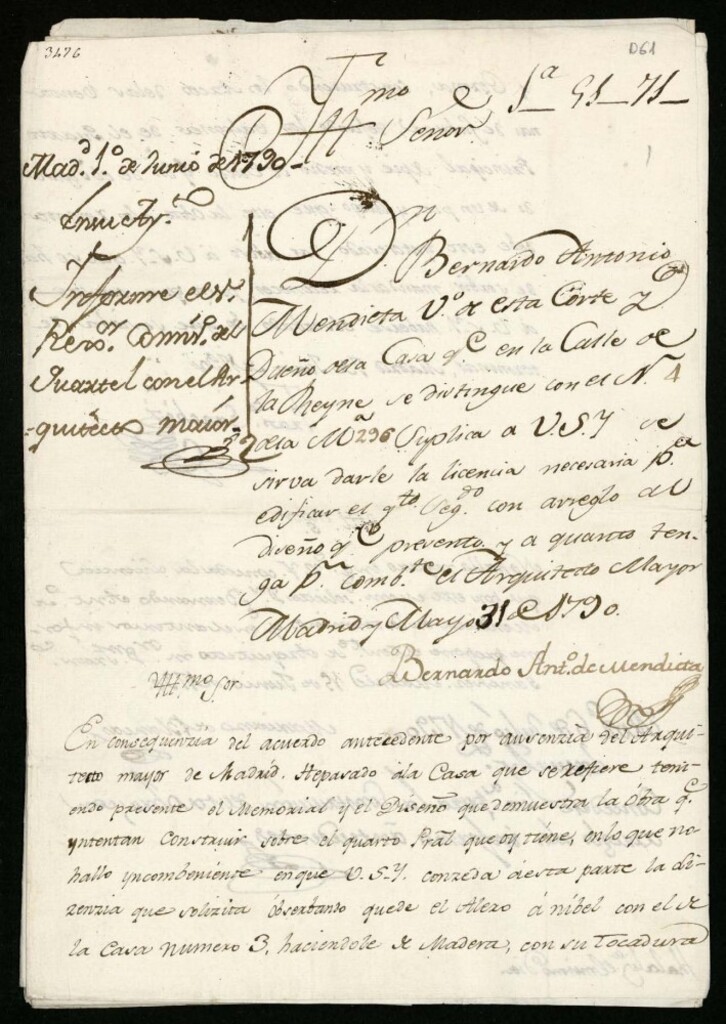 3476
D61
Yllmo Señor
1ª 51-71-
Madd. 1º. de Junio de 1790-
En su Ayº.
Informe el Sr.
Rexor. Comisº. del
Quartel con el Ar-
-quitecto maior-
Dn
Bernardo Antonio
Mendieta Vº. de esta Corte y
Dueño dela Casa qe en la Calle de
la Reyna se distingue con el Nº. 4
dela Mª 296 Suplica a V.S.Y se
sirva darle la licencia necesaria pª.
edificar el qto. Segdo. con arreglo al
diseño qe presento y a quanto ten-
ga pr. combte. el Arquitecto Mayor
Madrid y Mayo 31 de 1790.
Bernardo Antº. de Mendieta
Yllmo Sor.
En consequenzia del acuerdo antecedente por ausenzia del Arqui-
tecto mayor de Madrid. He pasado ála Casa que se refiere teni-
endo presente el Memorial y el Diseño que demuestra la óbra qe.
yntentan Construir sobre el quarto Pral que oy tiene, en lo que no
hallo yncombeniente en que V.S.Y. conzeda áesta parte la li-
zenzia que solizita óbserbando quede el Alero á nibel con el de
la Casa numero 3, haciendole de Madera, con su tocadura